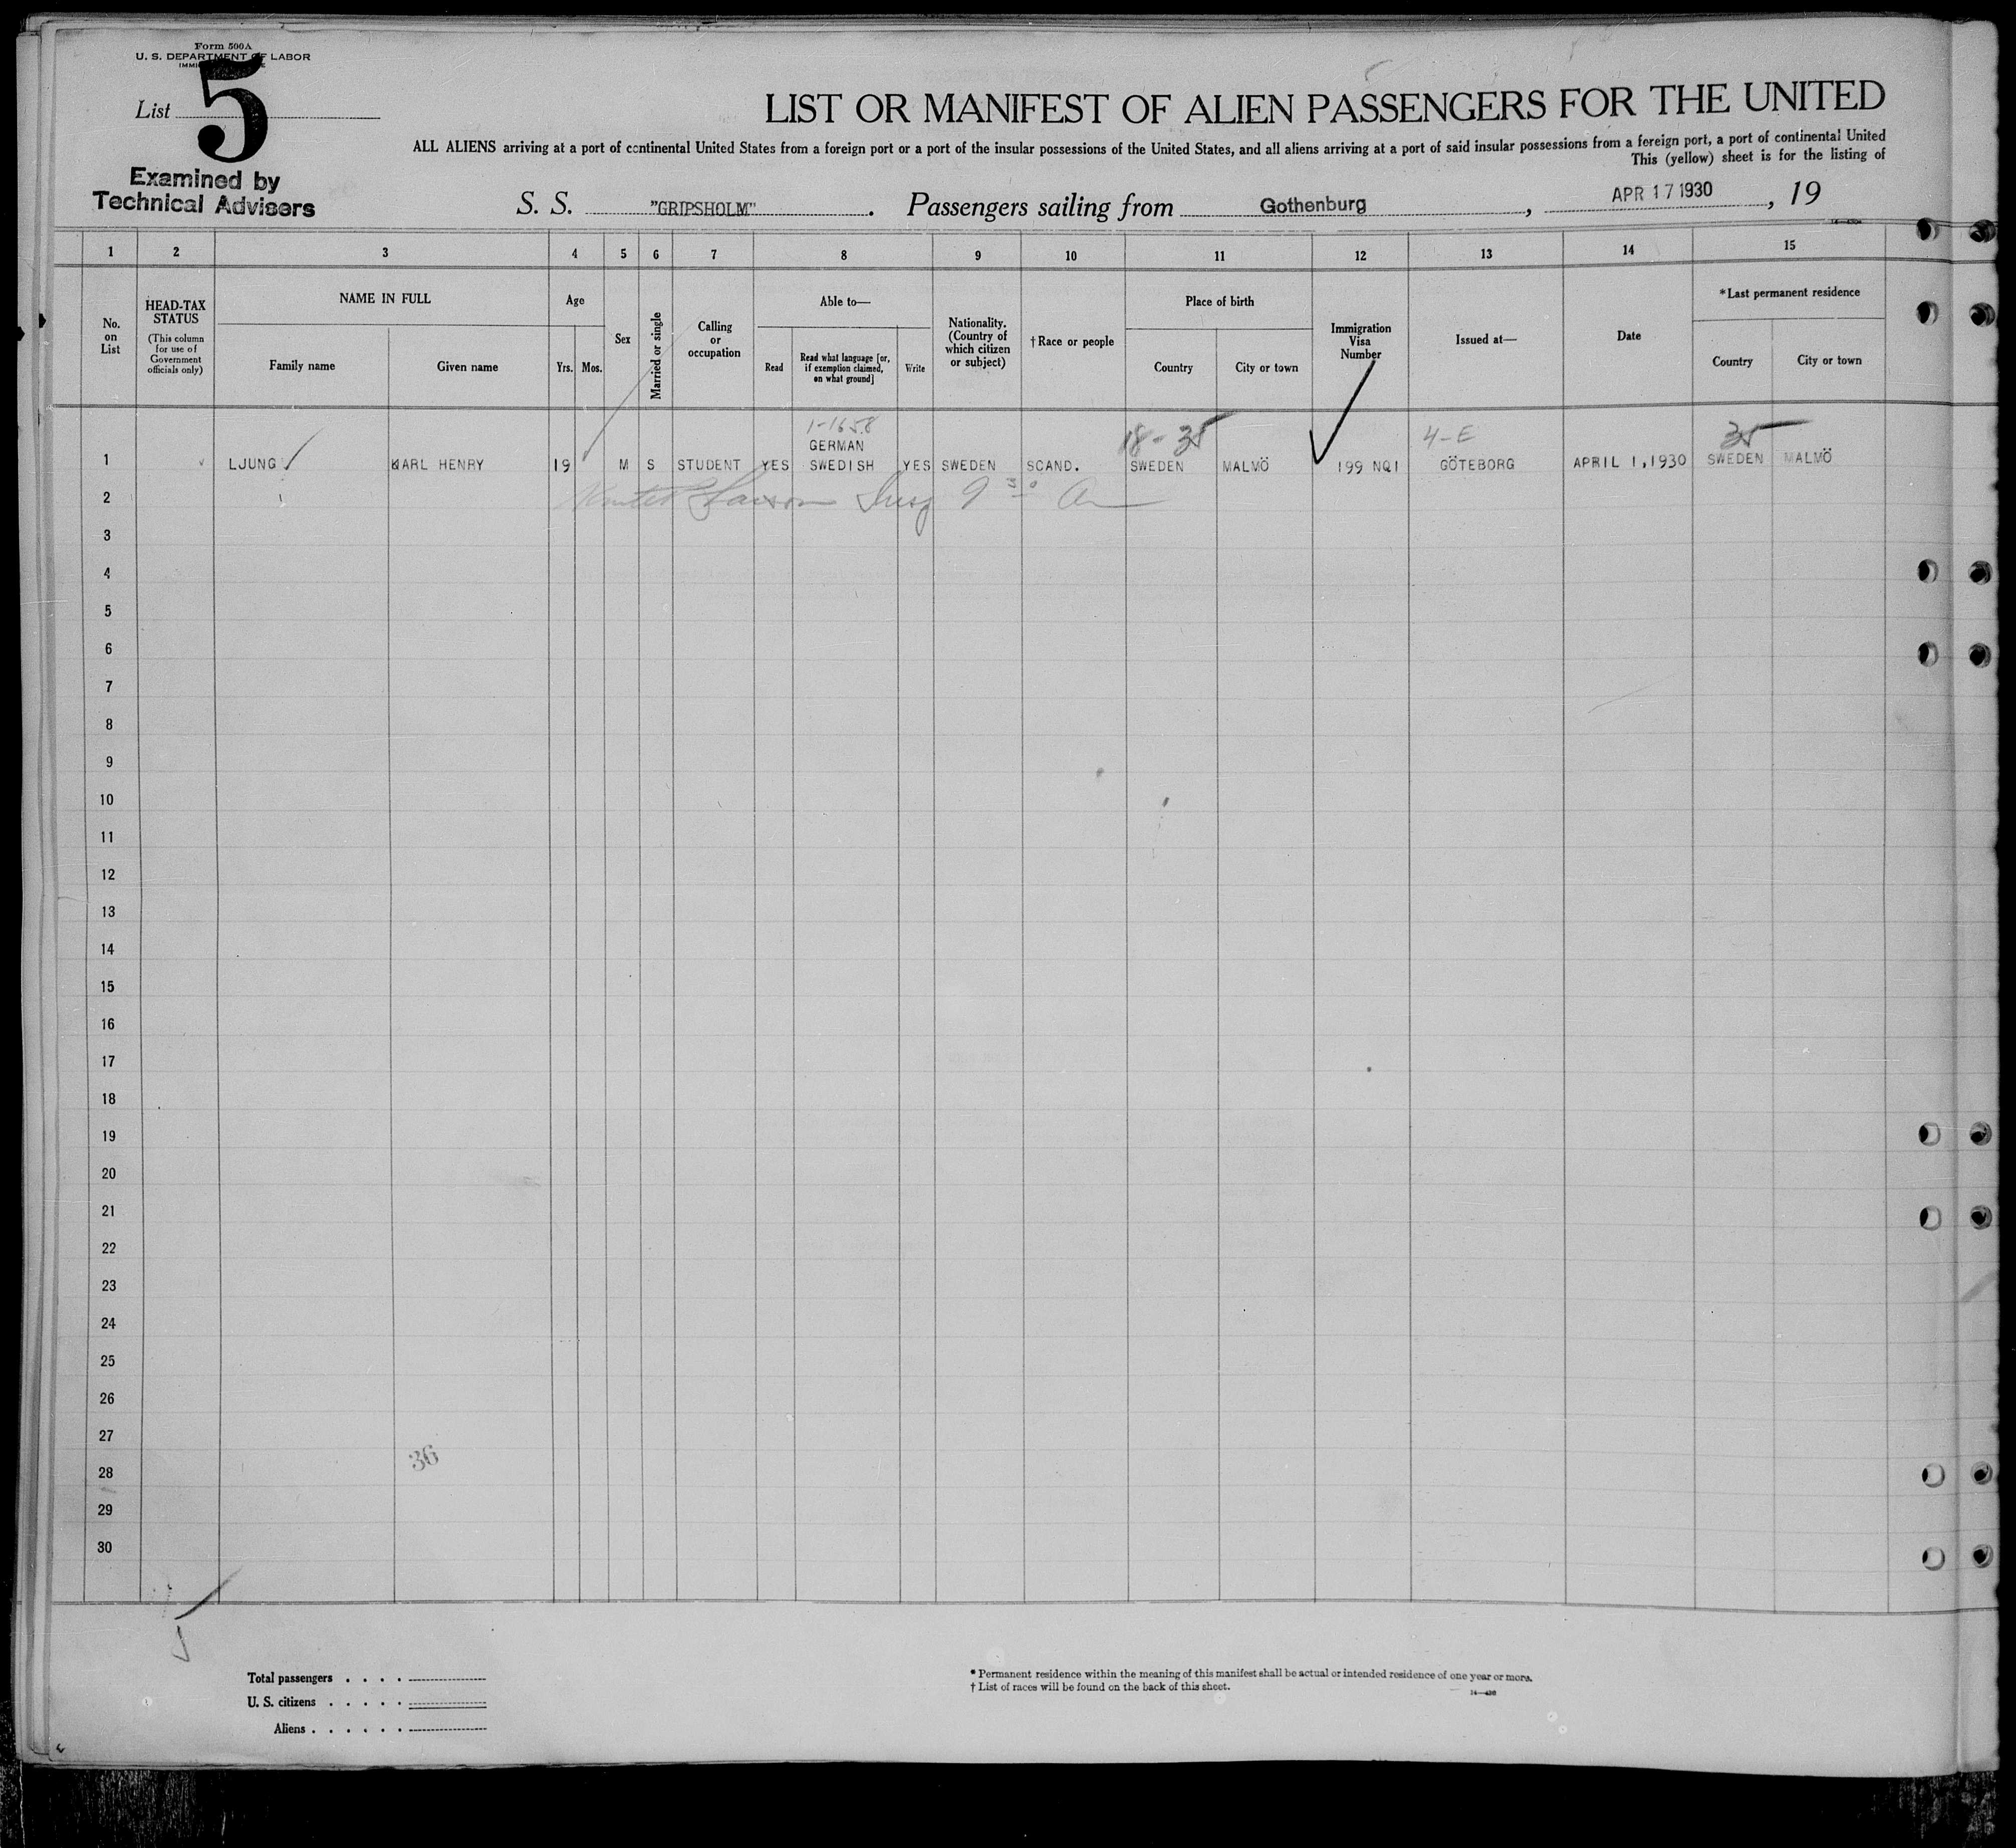 Form 500A
U. S. DEPARTMENT OF LABOR
List 5
Examined by
Technical Advisers
LIST OR MANIFEST OF ALIEN PASSENGERS FOR THE UNITED
ALL ALIENS arriving at a port of continental United States from a foreign port or a port of the insular possessions of the United States, and all aliens arriving at a port of said insular possessions from a foreign port, a port of continental United
This (yellow) sheet is for the listing of
S. S. "GRIPSHOLM". Passengers sailing from Gothenburg, APR 17 1930, 19
1 2 3 4 5 6 7 8 9 10 11 12 13 14 15
No. on List
HEAD-TAX STATUS
(This column for use of Government officials only)
NAME IN FULL
Family name
Given name
Age
Yrs. Mos.
Sex
Married or single
Calling or occupation
Able to—
Read
Read what language [or, if exemption claimed, on what ground]
Write
Nationality. (Country of which citizen or subject)
†Race or people
Place of birth
Country
City or town
Immigration Visa Number
Issued at—
Date
*Last permanent residence
Country
City or town
1-1658 18-35 4-E 35
GERMAN
1 LJUNG KARL HENRY 19 M S STUDENT YES SWEDISH YES SWEDEN SCAND. SWEDEN MALMÖ 199 NQI GÖTEBORG APRIL 1,1930 SWEDEN MALMÖ
2 9 30
3
4
5
6
7
8
9
10
11
12
13
14
15
16
17
18
19
20
21
22
23
24
25
26
27
36
28
29
30
Total passengers . . . .
U. S. citizens . . . . .
Aliens . . . . . .
* Permanent residence within the meaning of this manifest shall be actual or intended residence of one year or more.
† List of races will be found on the back of this sheet.